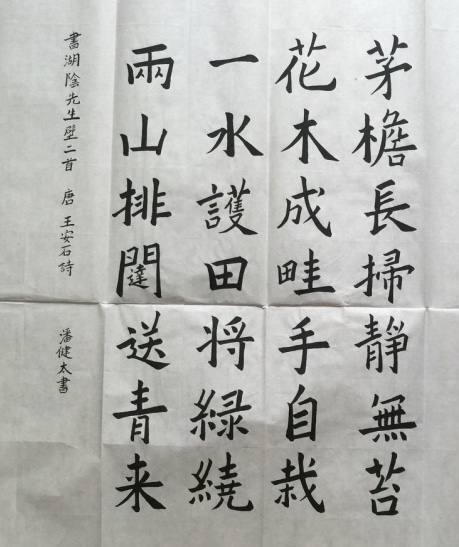 茅檐長掃靜無苔
花木成畦手自栽
一水護田将緑繞
兩山排闥送青来
書湖陰先生壁二首 唐 王安石詩
潘健太書